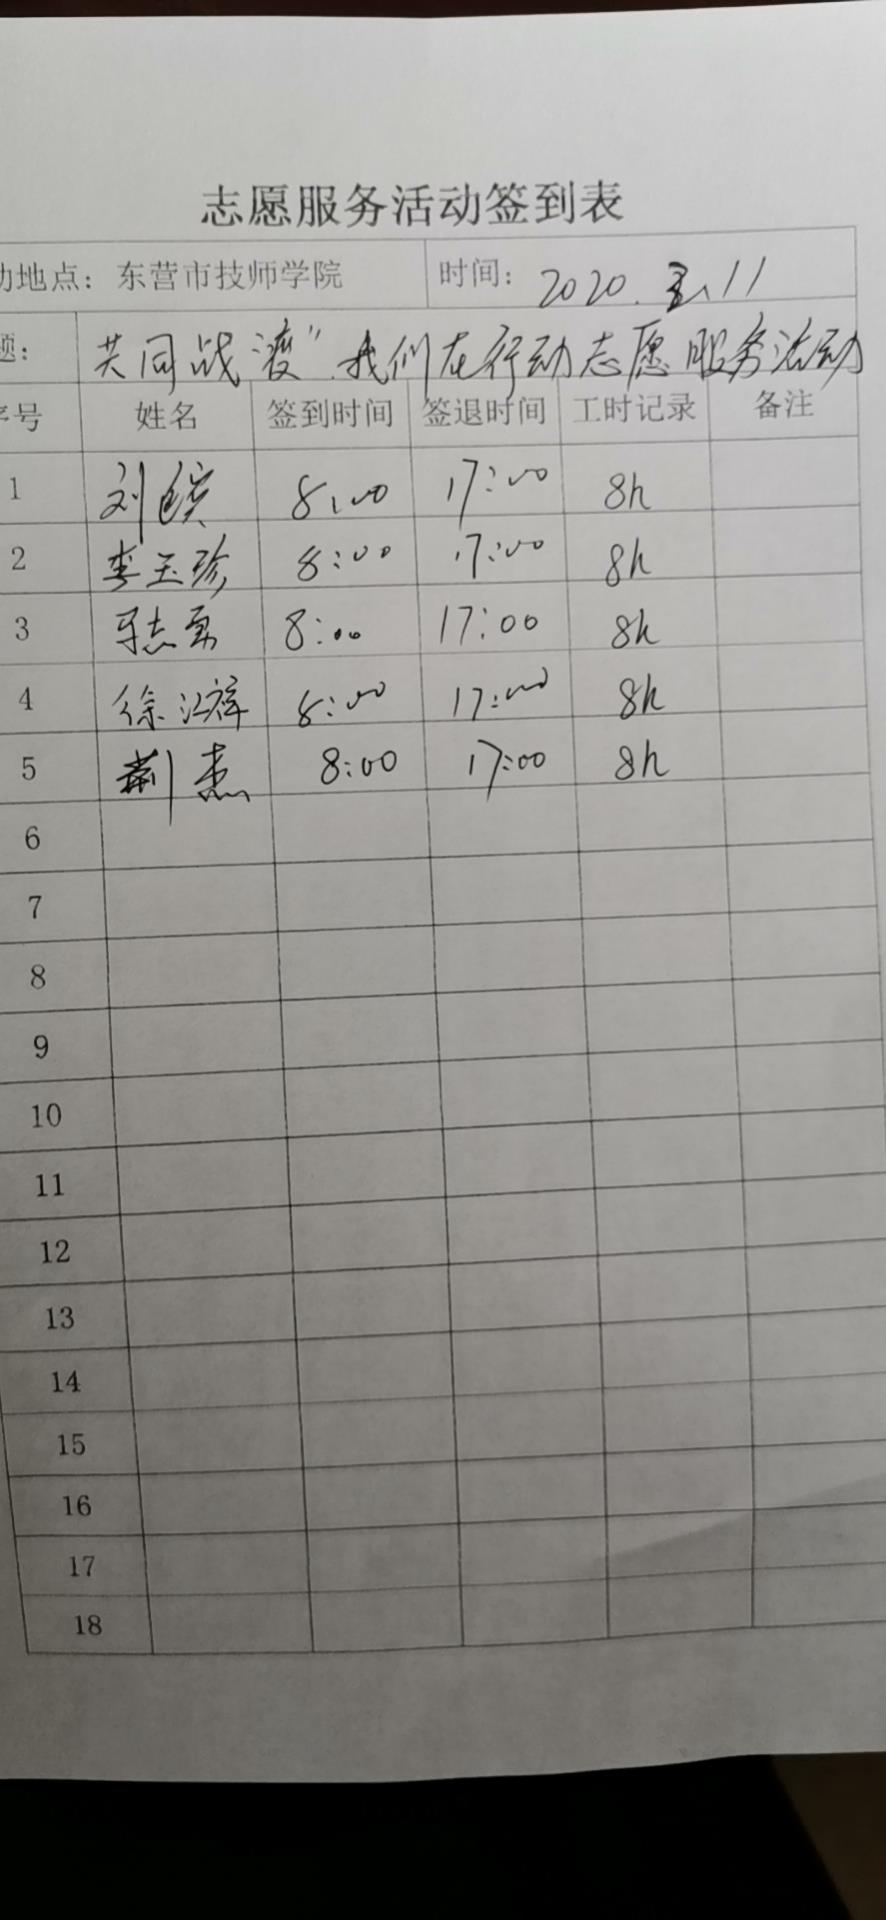 志愿服务活动签到表
动地点：东营市技师学院 时间：2020.3.11
题： 共同战渡"我们在行动志愿服务活动
序号 姓名 签到时间 签退时间 工时记录 备注
1 刘 8:00 17:00 8h
2 李玉珍 8:00 17:00 8h
3 志勇 8:00 17:00 8h
4 徐江祥 8:00 17:00 8h
5 荆杰 8:00 17:00 8h
6
7
8
9
10
11
12
13
14
15
16
17
18